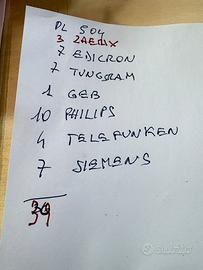 PL 504
3 ZAERIX
7 EDICRON
7 TUNGSRAM
1 GEB
10 PHILIPS
4 TELEFUNKEN
7 SIEMENS
39
subito